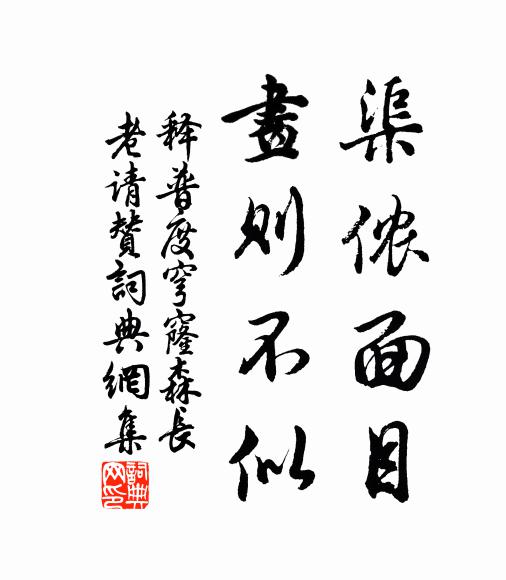 渠侬面目
畫则不似
释普度穹窿森长
老请赞詞典網集
詞典网印